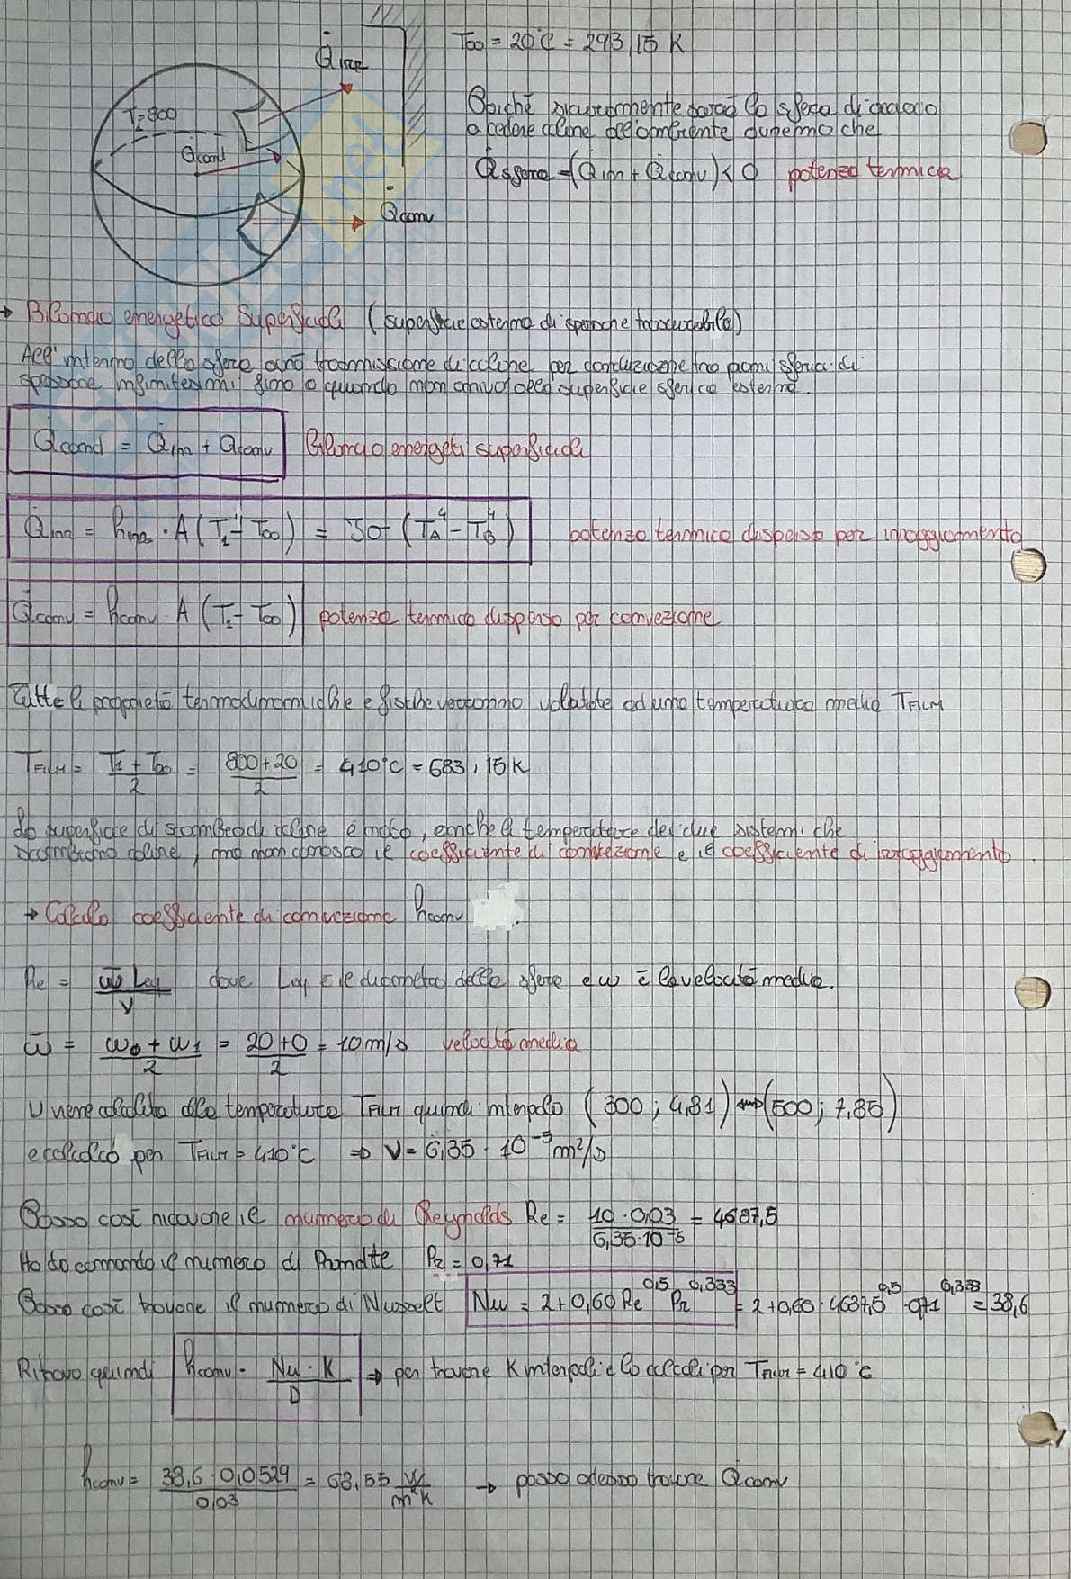 Q̇irr
T∞ = 20°C = 293,15 K
T₁=800
Q̇cond
Q̇conv
Poiché sicuramente sarà la sfera di acciaio
a cedere calore all'ambiente avremo che
Q̇sfera = -(Q̇irr + Q̇conv) < 0 potenza termica
→ Bilancio energetico Superficiale (superficie esterna di spessore trascurabile)
All'interno della sfera avrò trasmissione di calore per conduzione tra piani sferici di
spessore infinitesimi fino a quando non arrivo alla superficie sferica esterna.
Q̇cond = Q̇irr + Q̇conv Bilancio energeti superficiale
Q̇irr = hirr · A (T₁ - T∞) = Jσ (T_A⁴ - T_B⁴) potenza termica dispersa per irraggiamento
Q̇conv = hconv · A (T₁ - T∞) potenza termica dispersa per convezione
Tutte le proprietà termodinamiche e fisiche verranno valutate ad una temperatura media TFILM
TFILM = T₁ + T∞ / 2 = 800 + 20 / 2 = 410°C = 683,15 K
La superficie di scambio di calore è nota, anche le temperature dei due sistemi che
scambiano calore, ma non conosco il coefficiente di convezione e il coefficiente di irraggiamento.
→ Calcolo coefficiente di convezione hconv
Re = w̄ Leq / ν dove Leq è il diametro della sfera e w è la velocità media.
w̄ = w₀ + w₁ / 2 = 20 + 0 / 2 = 10 m/s velocità media
ν viene calcolato alla temperatura TFILM quindi interpolo (300 ; 4,81) ↔ (500 ; 7,85)
e calcolo per TFILM = 410°C ⇒ ν = 6,35 · 10⁻⁵ m²/s
Posso così ricavare il numero di Reynolds Re = 10 · 0,03 / 6,35 · 10⁻⁵ = 4687,5
Ho da comando il numero di Prandtl Pr = 0,71
Posso così trovare il numero di Nusselt Nu = 2 + 0,60 Re^0,5 Pr^0,333 = 2 + 0,60 · 4687,5^0,5 · 0,71^0,333 = 38,6
Ritrovo quindi hconv = Nu · K / D ⇒ per trovare K interpoli e lo calcoli per TFILM = 410°C
hconv = 38,6 · 0,0529 / 0,03 = 68,55 W / m²K → posso adesso trovare Q̇conv